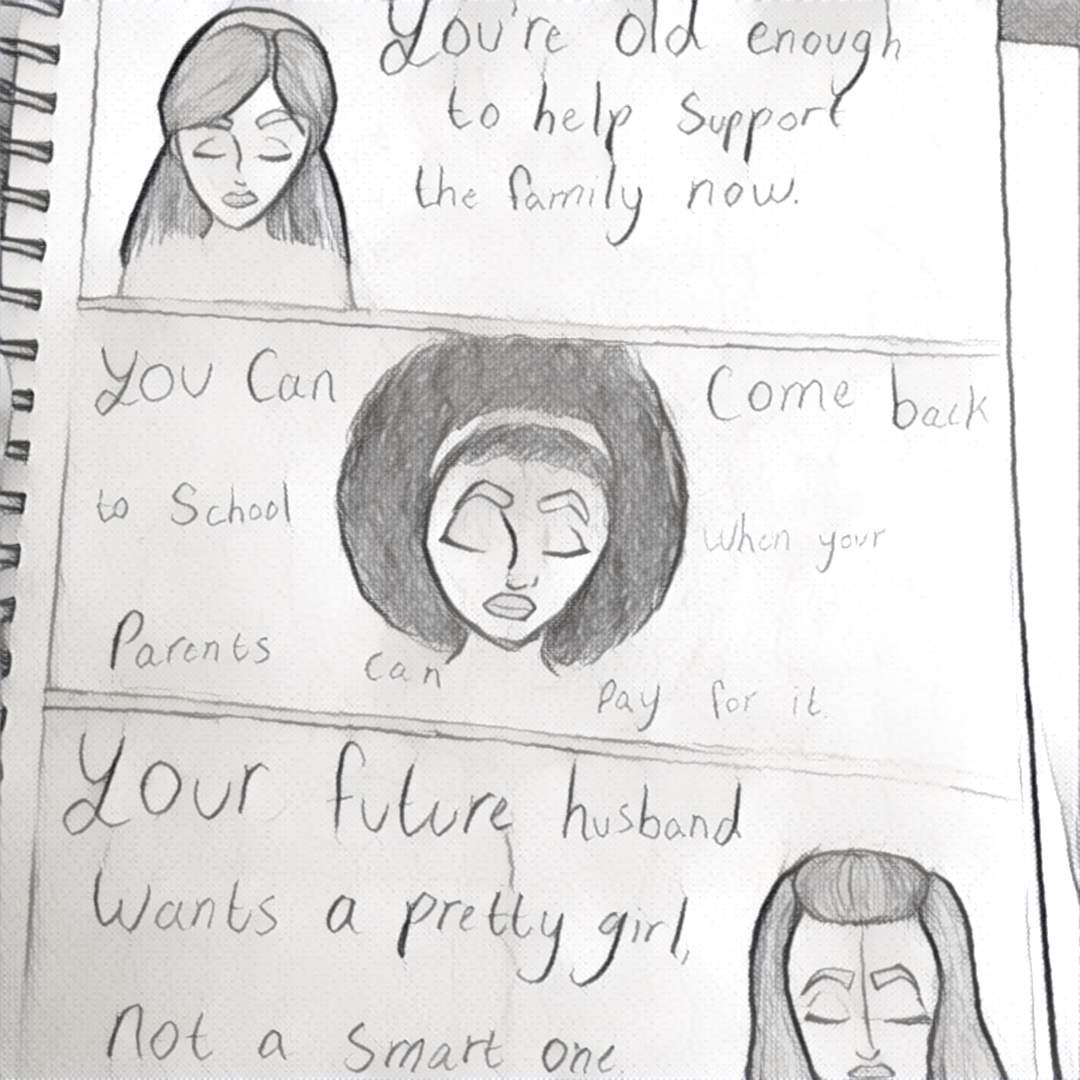 You're old enough
to help Support
the family now.
You Can Come back
to School When your
Parents can pay for it.
Your future husband
Wants a pretty girl,
not a smart one.